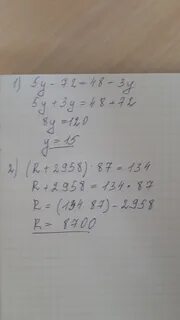 1) 5y - 72 = 48 - 3y
5y + 3y = 48 + 72
8y = 120
y = 15
2) (R + 2958) : 87 = 134
R + 2958 = 134 · 87
R = (134 · 87) - 2958
R = 8700